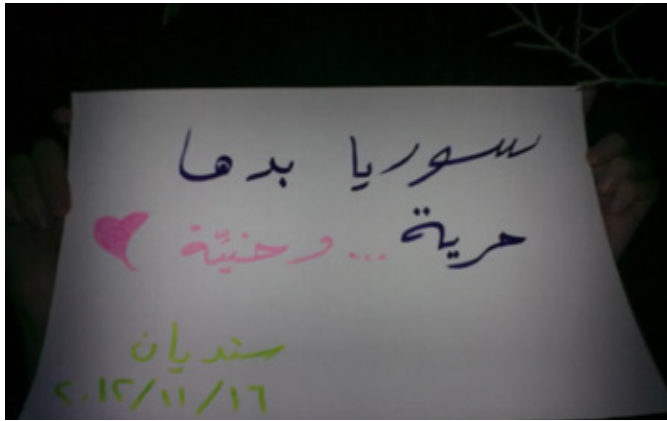 سوريا بدها
حرية ... و حنيّة
سنديان
٢٠١٢/١١/١٦